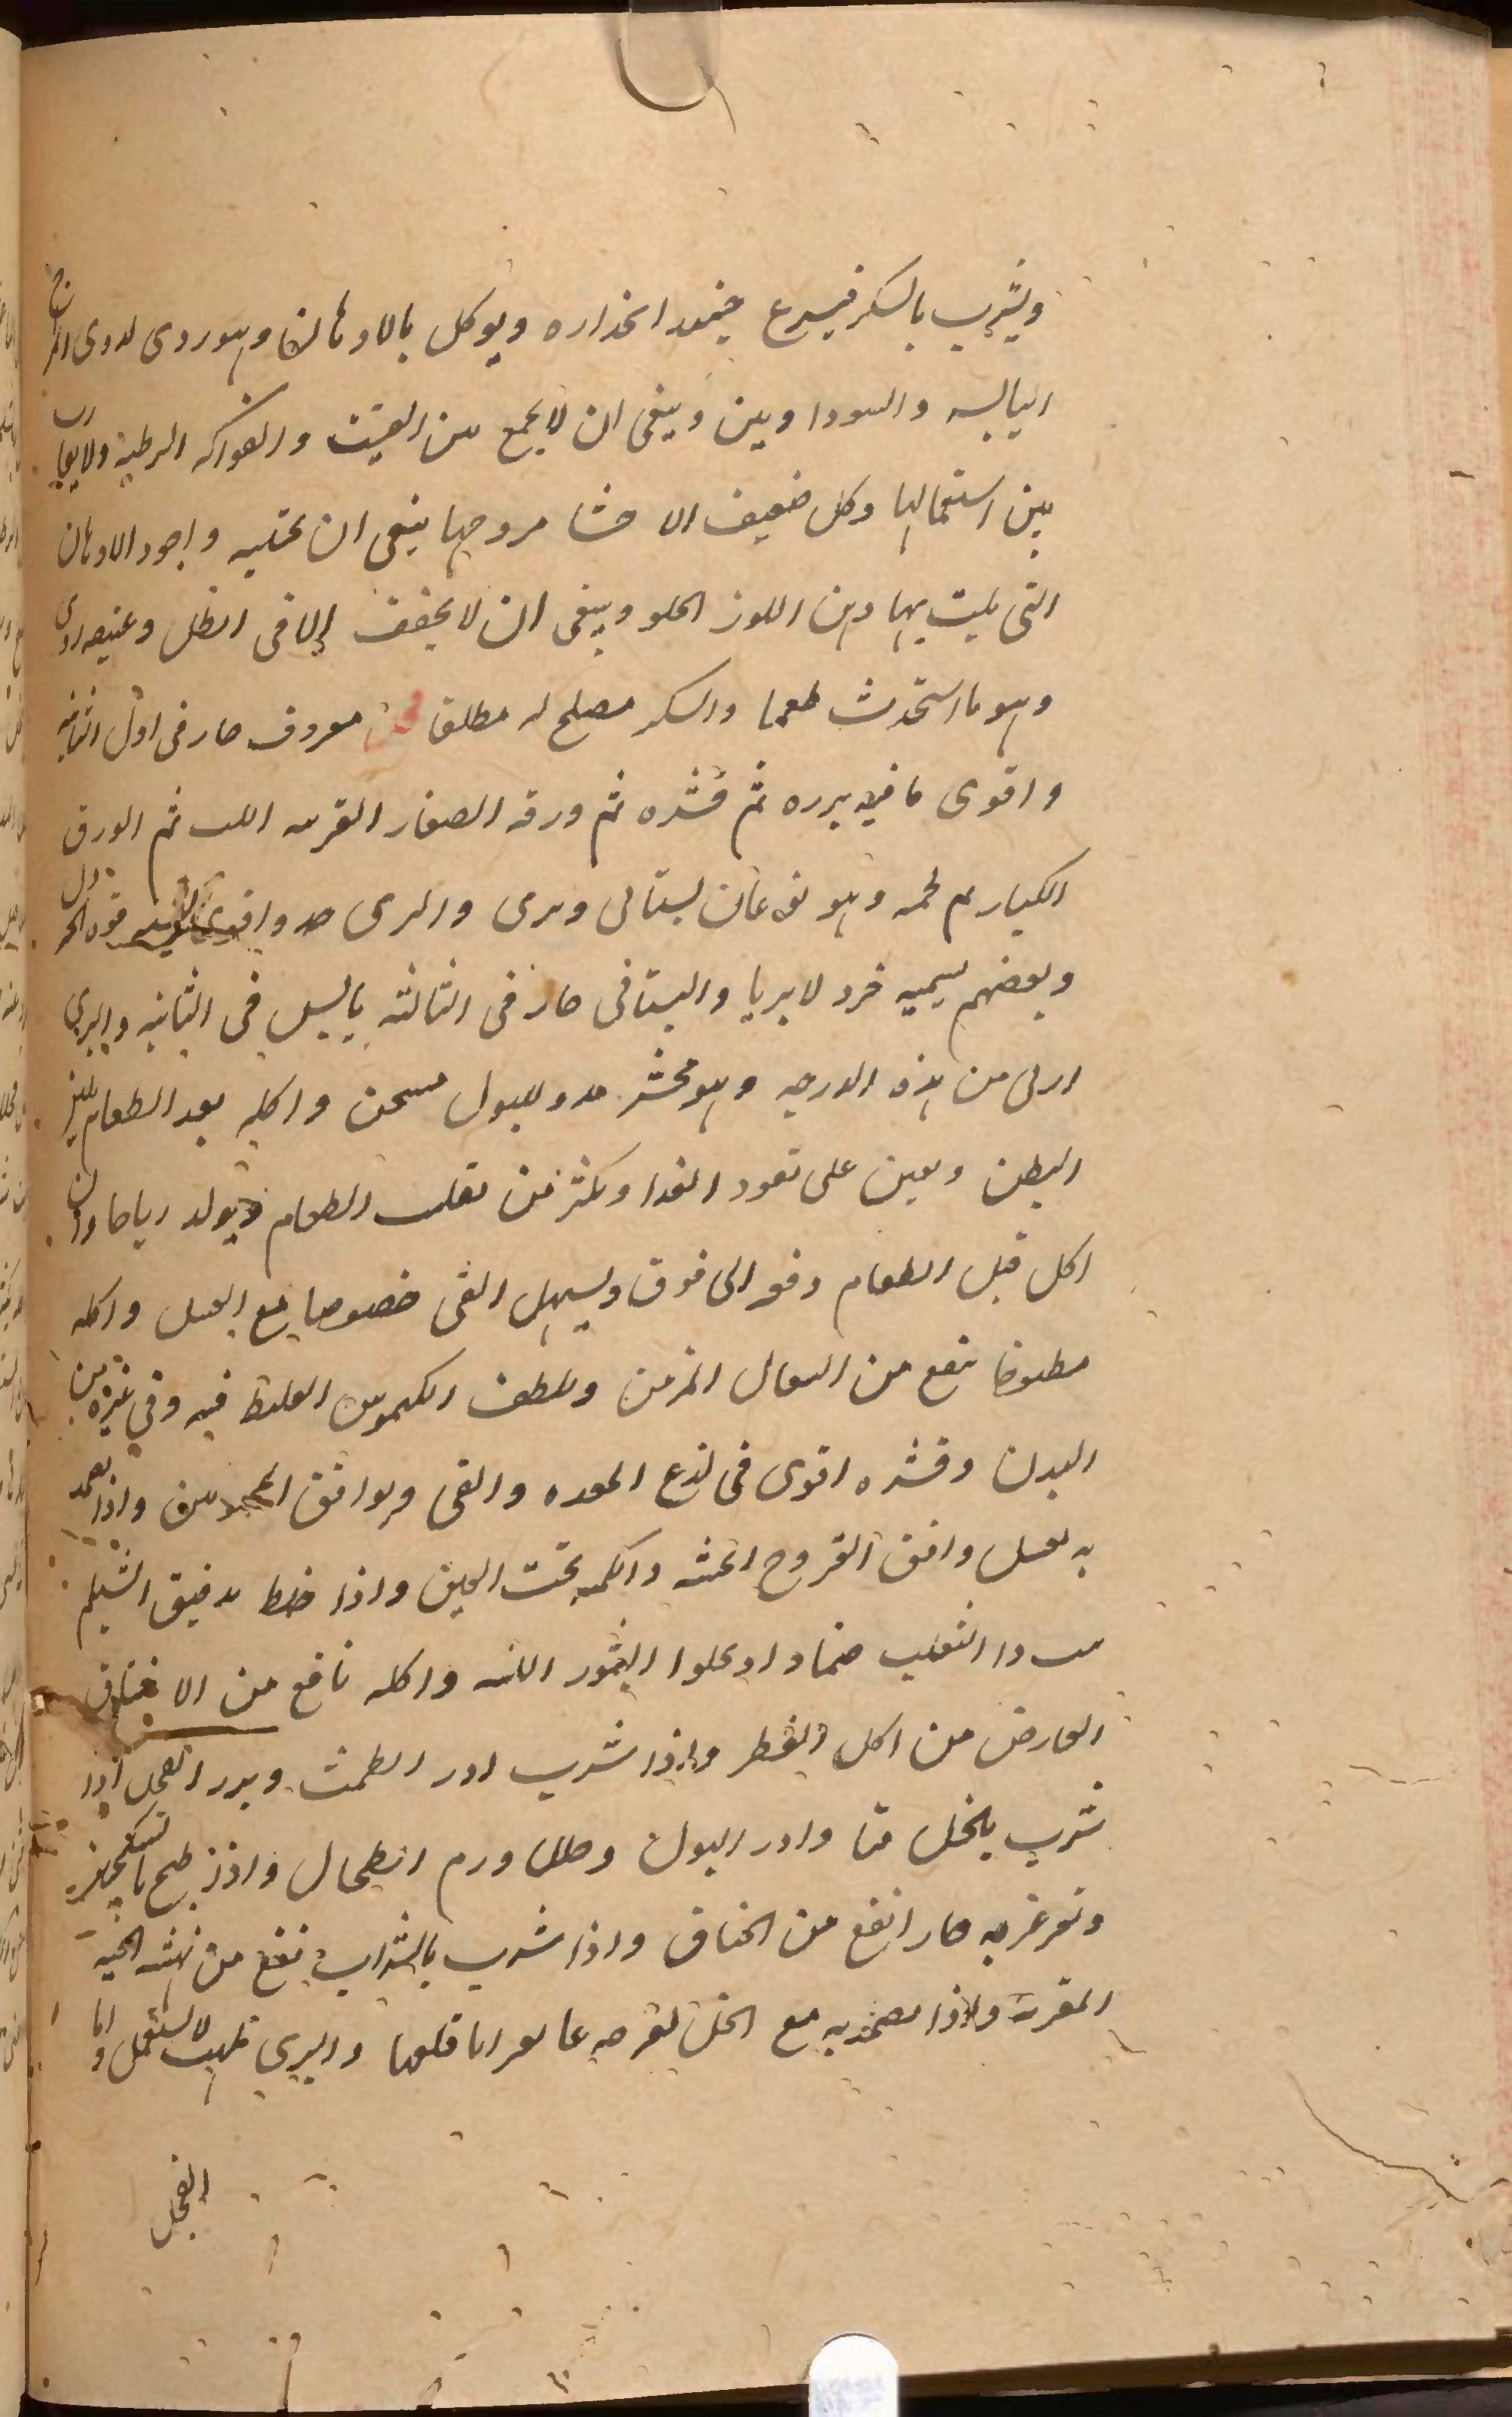 ويشرب بالسكر فيسرع حينئذ انحداره ويوكل بالادهان وهو ردى لذوى المزاج
اليابسه والسوداويين وينبغى ان لا يجمع بين الفتيت والفواكه الرطبة ولا يقارب
بين استعمالها وكل ضعيف الاحشا مروحها ينبغى ان يجتنبه واجود الادهان
التى يلت بها دهن اللوز الحلو وينبغى ان لا يجفف الا فى الظل وعتيقه ردى
وهو ما استحدث طعما والسكر مصلح له مطلق فجل معروف حار فى اول الثانيه
واقوى ما فيه بزره ثم قشره ثم ورقه الصغار القريبه ثم الورق
الكبار ثم لحمه وهو نوعان بستانى وبرى والبرى حد واقوى قوه الحر
وبعضهم يسميه خردلا بريا والبستانى حار فى الثالثه يابس فى الثانيه والبرى
ارلى من هذه الدرجه وهو مجش مدر للبول مسخن واكله بعد الطعام يلين
البطن ويعين على نفوذ الغذا وكثر من تقلب الطعام ويولد رياحا وان
اكل قبل الطعام دفع الى فوق ويسهل القى خصوصا مع العسل واكله
مطبوخا ينفع من السعال المزمن ويلطف الكيموس الغليظ فيه وفى غيره من
البدن وقشره اقوى فى لذع المعده والقى ويوافق المحبوسين واذا تضمد
به بعسل وافق القروح الخبيثه والكمه تحت العين واذا خلط بدقيق الشيلم
نبت دا الثعلب ضمادا وجلوا البثور اللبنيه واكله نافع من الاختناق
العارض من اكل الفطر واذا شرب ادر الطمث وبزر الفجل اذا
شرب بالخل قيا وادر البول وحلل ورم الطحال واذا طبخ بالسكنجبين
وتغرغر به حارا نفع من الخناق واذا شرب بالشراب نفع من نهشه الحيه
المقرنه واذا تضمد به مع الخل لقرحه قلعها والبرى لا يستعمل واما
الفجل